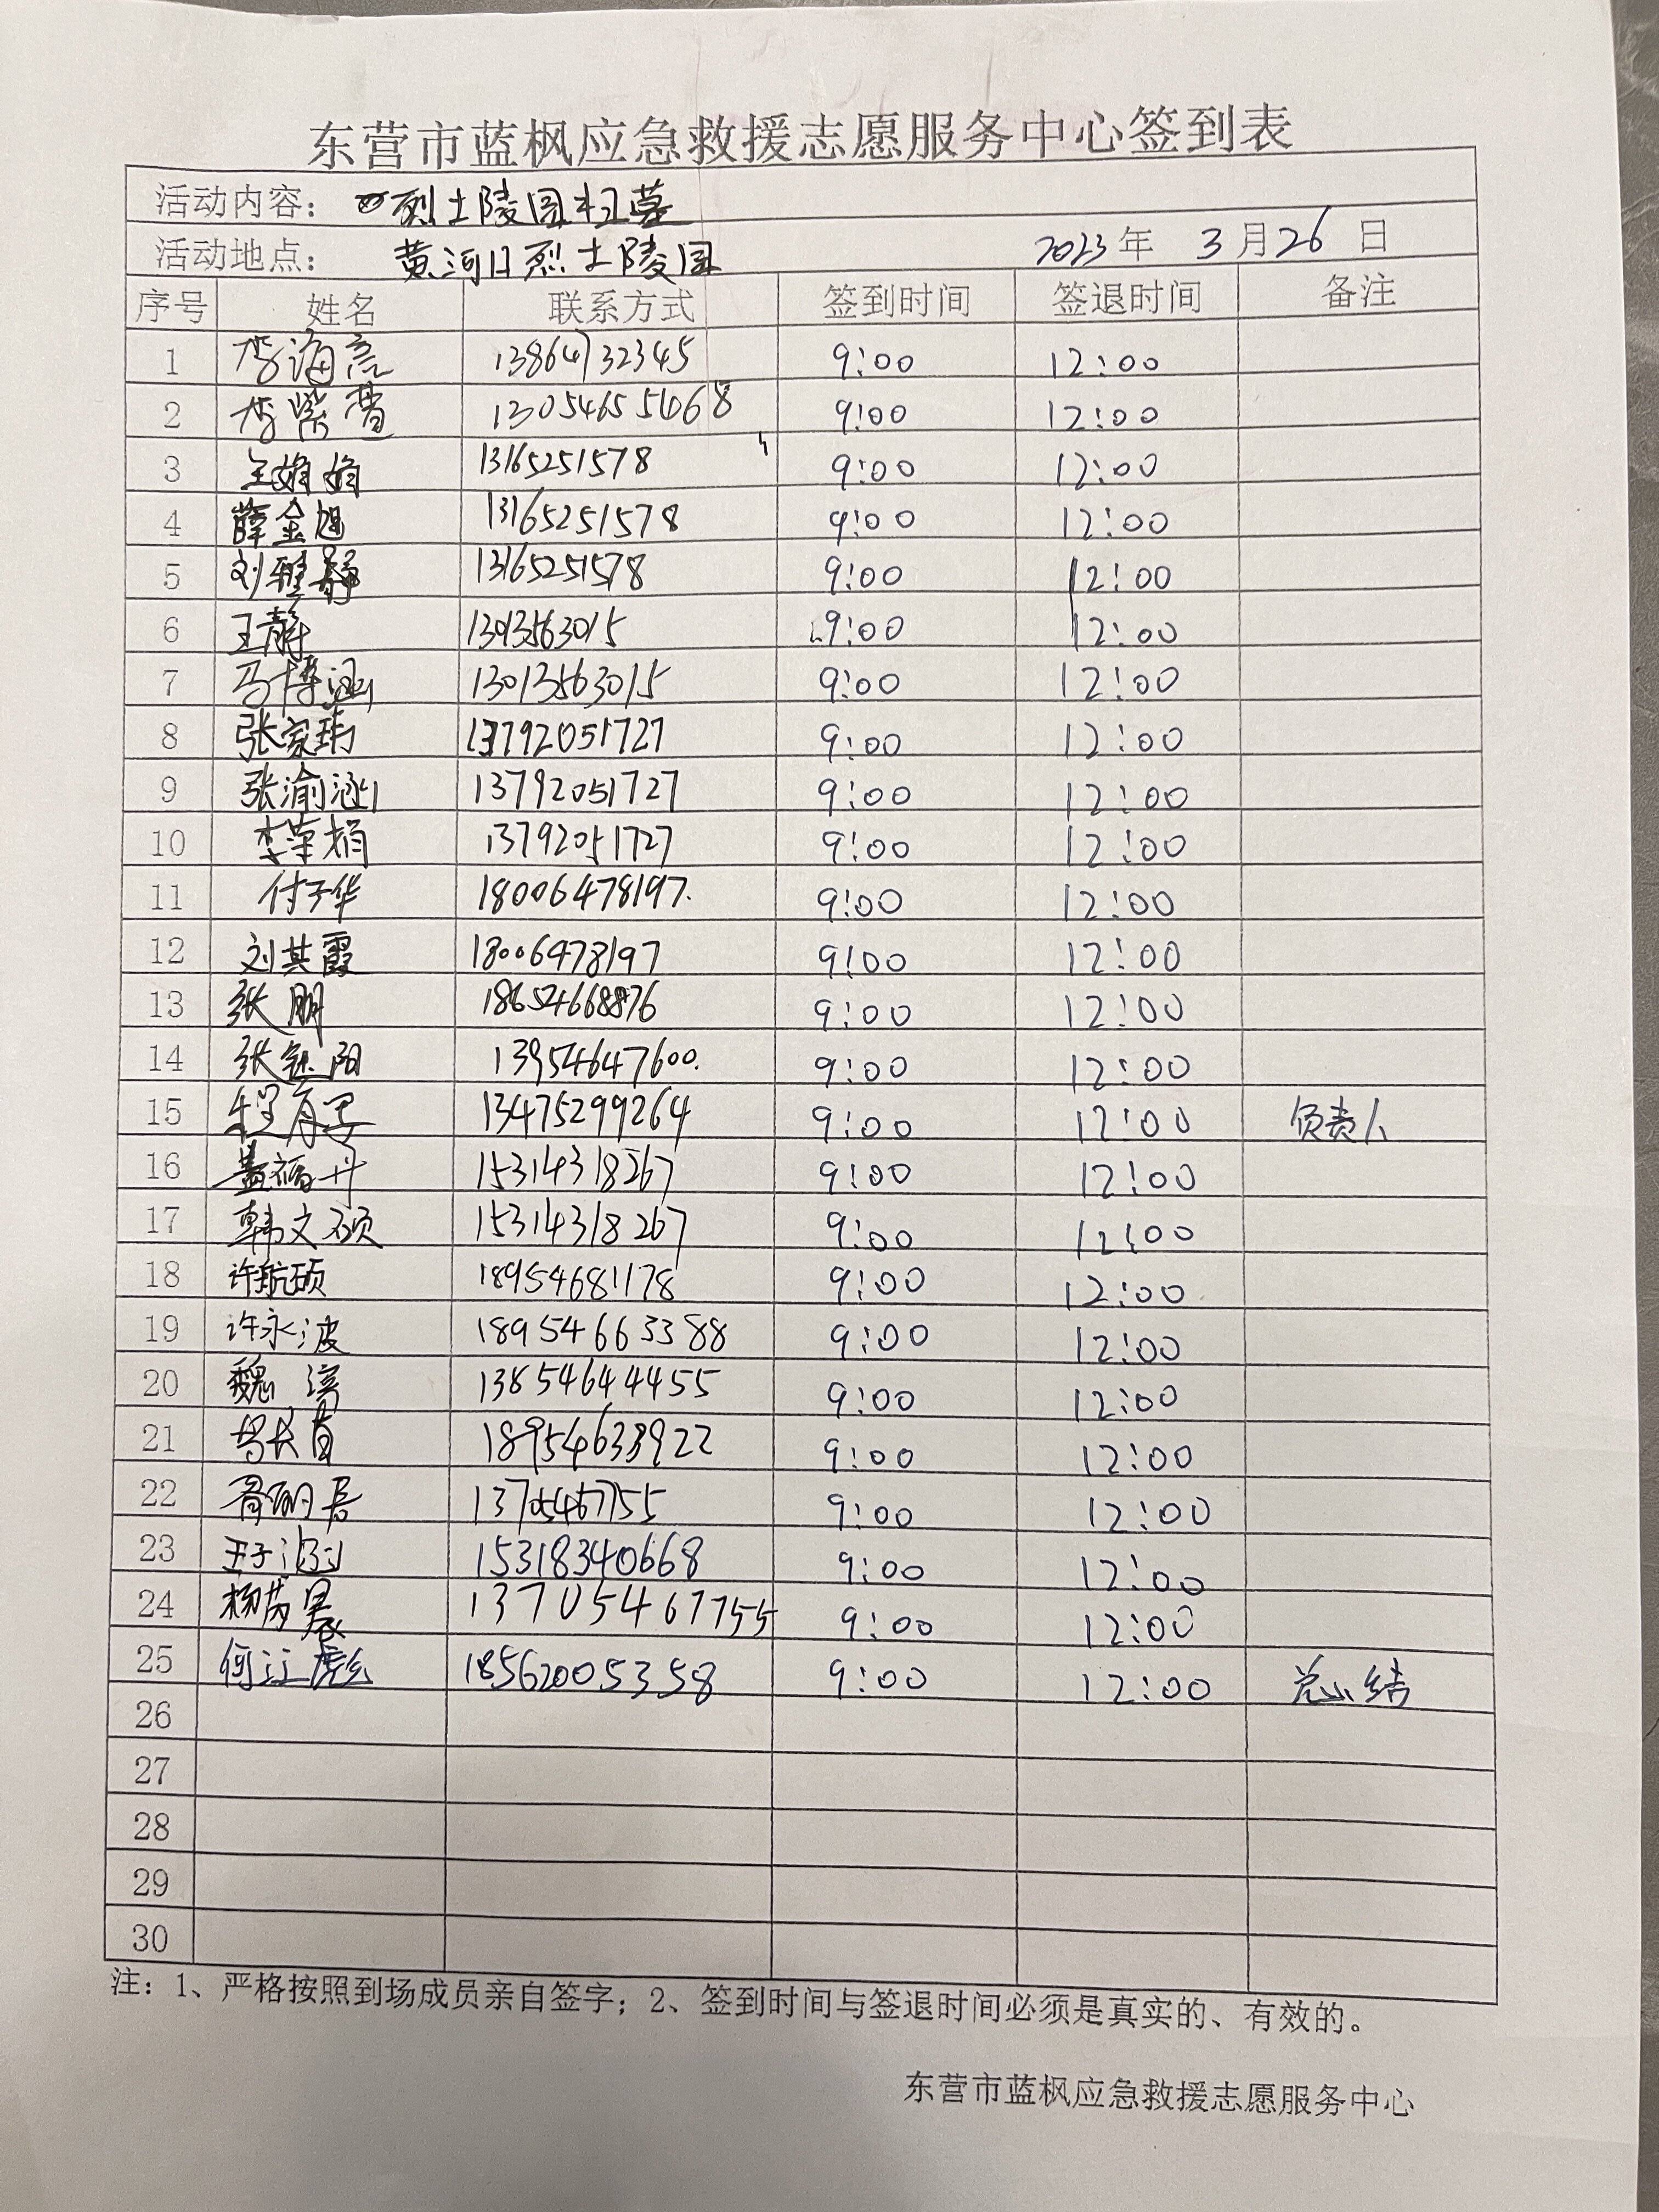 东营市蓝枫应急救援志愿服务中心签到表
活动内容： 烈士陵园扫墓
活动地点： 黄河口烈士陵园 2023年 3月26日
序号 姓名 联系方式 签到时间 签退时间 备注
1 李海亮 13864732345 9:00 12:00
2 李紫萱 13054655068 9:00 12:00
3 王娟娟 13165251578 9:00 12:00
4 薛金旭 13165251578 9:00 12:00
5 刘雅静 13165251578 9:00 12:00
6 王静 13013563015 9:00 12:00
7 马博涵 13013563015 9:00 12:00
8 张家玮 13792051727 9:00 12:00
9 张渝涵 13792051727 9:00 12:00
10 李荣娟 13792051727 9:00 12:00
11 付子华 18006478197. 9:00 12:00
12 刘其霞 18006478197 9:00 12:00
13 张朋 18654668876 9:00 12:00
14 张钰阳 13954647600. 9:00 12:00
15 13475299264 9:00 12:00 负责人
16 盖福丹 15314318267 9:00 12:00
17 韩文硕 15314318267 9:00 12:00
18 许航硕 18954681178 9:00 12:00
19 许永波 18954663388 9:00 12:00
20 魏 13854644455 9:00 12:00
21 18954633922 9:00 12:00
22 13705467755 9:00 12:00
23 王子涵 15318340668 9:00 12:00
24 杨芮 13705467755 9:00 12:00
25 何江彪 18562005358 9:00 12:00 总结
26
27
28
29
30
注：1、严格按照到场成员亲自签字；2、签到时间与签退时间必须是真实的、有效的。
东营市蓝枫应急救援志愿服务中心